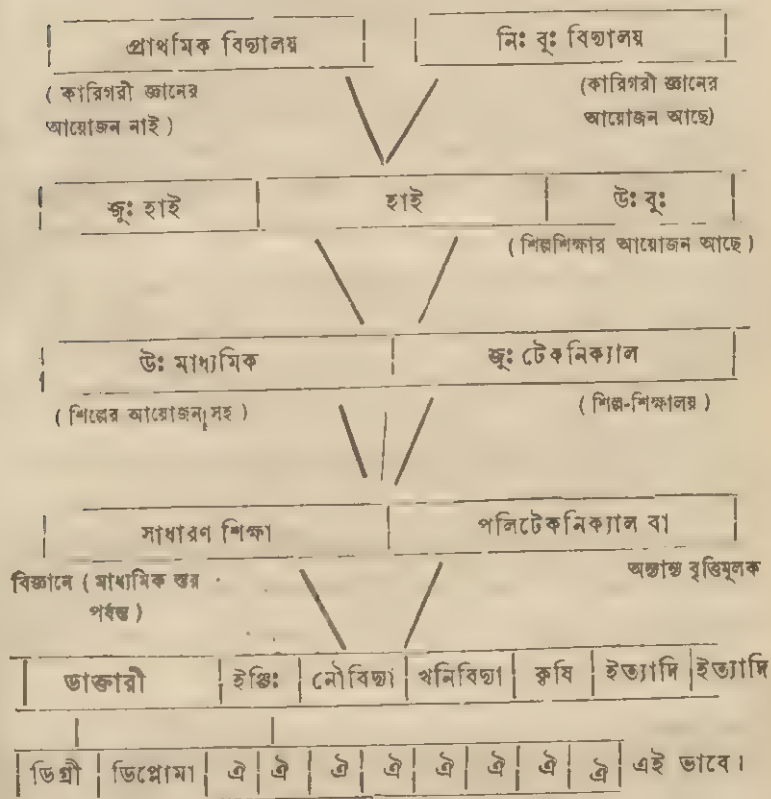 প্রাথমিক বিদ্যালয় নি: বু: বিদ্যালয়
( কারিগরী জ্ঞানের (কারিগরী জ্ঞানের
আয়োজন নাই ) আয়োজন আছে)
জু: হাই হাই উ: বু:
( শিল্পশিক্ষার আয়োজন আছে )
উ: মাধ্যমিক জু: টেকনিক্যাল
( শিল্পের আয়োজন সহ ) ( শিল্প-শিক্ষালয় )
সাধারণ শিক্ষা পলিটেকনিক্যাল বা
বিজ্ঞানে ( মাধ্যমিক স্তর অন্যান্য বৃত্তিমূলক
পর্যন্ত )
ডাক্তারী ইঞ্জি: নৌবিদ্যা খনিবিদ্যা কৃষি ইত্যাদি ইত্যাদি
ডিগ্রী ডিপ্লোমা ঐ ঐ ঐ ঐ ঐ ঐ ঐ ঐ এই ভাবে।